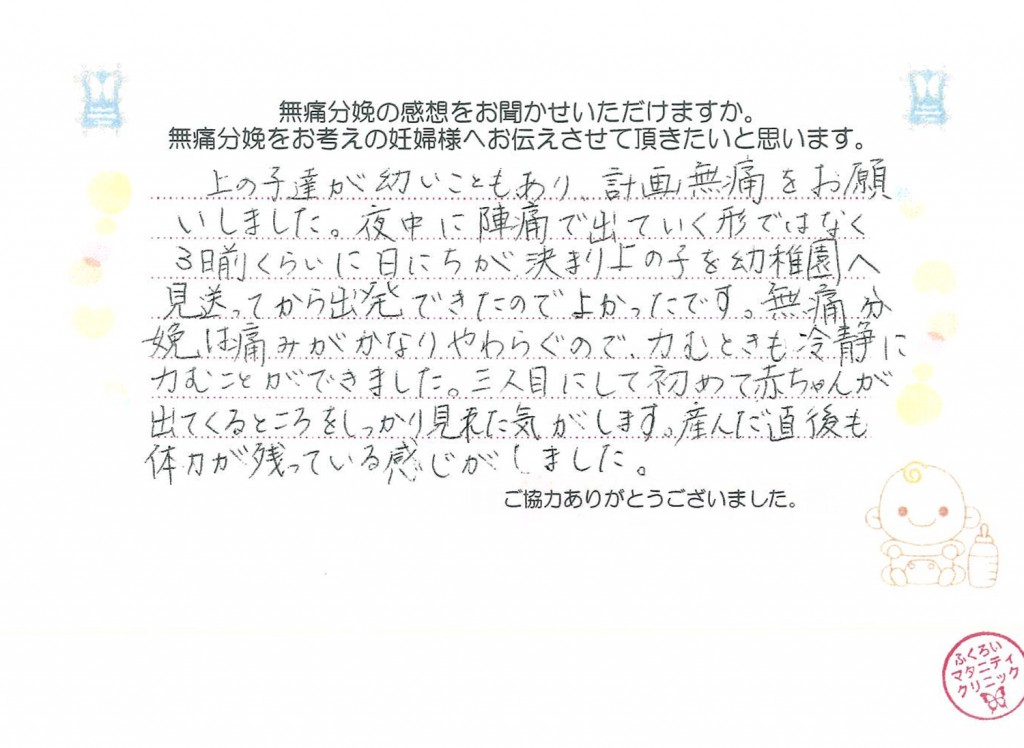 無痛分娩の感想をお聞かせいただけますか。
無痛分娩をお考えの妊婦様へお伝えさせて頂きたいと思います。
上の子達が幼いこともあり、計画無痛をお願
いしました。夜中に陣痛で出ていく形ではなく
3日前くらいに日にちが決まり上の子を幼稚園へ
見送ってから出発できたのでよかったです。無痛分
娩は痛みがかなりやわらぐので、力むときも冷静に
力むことができました。三人目にして初めて赤ちゃんが
出てくるところをしっかり見れた気がします。産んだ直後も
体力が残っている感じがしました。
ご協力ありがとうございました。
ふくろい
マタニティ
クリニック